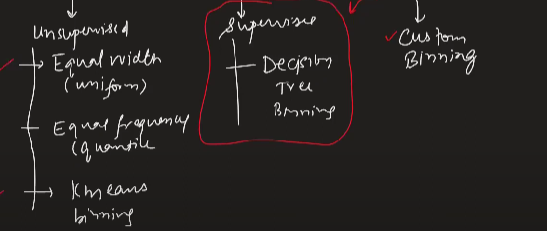 Unsupervised
Equal width
(uniform)
Equal frequency
(quantile
Kmeans
binning
Supervise
Decision
Tree
Binning
Custom
Binning